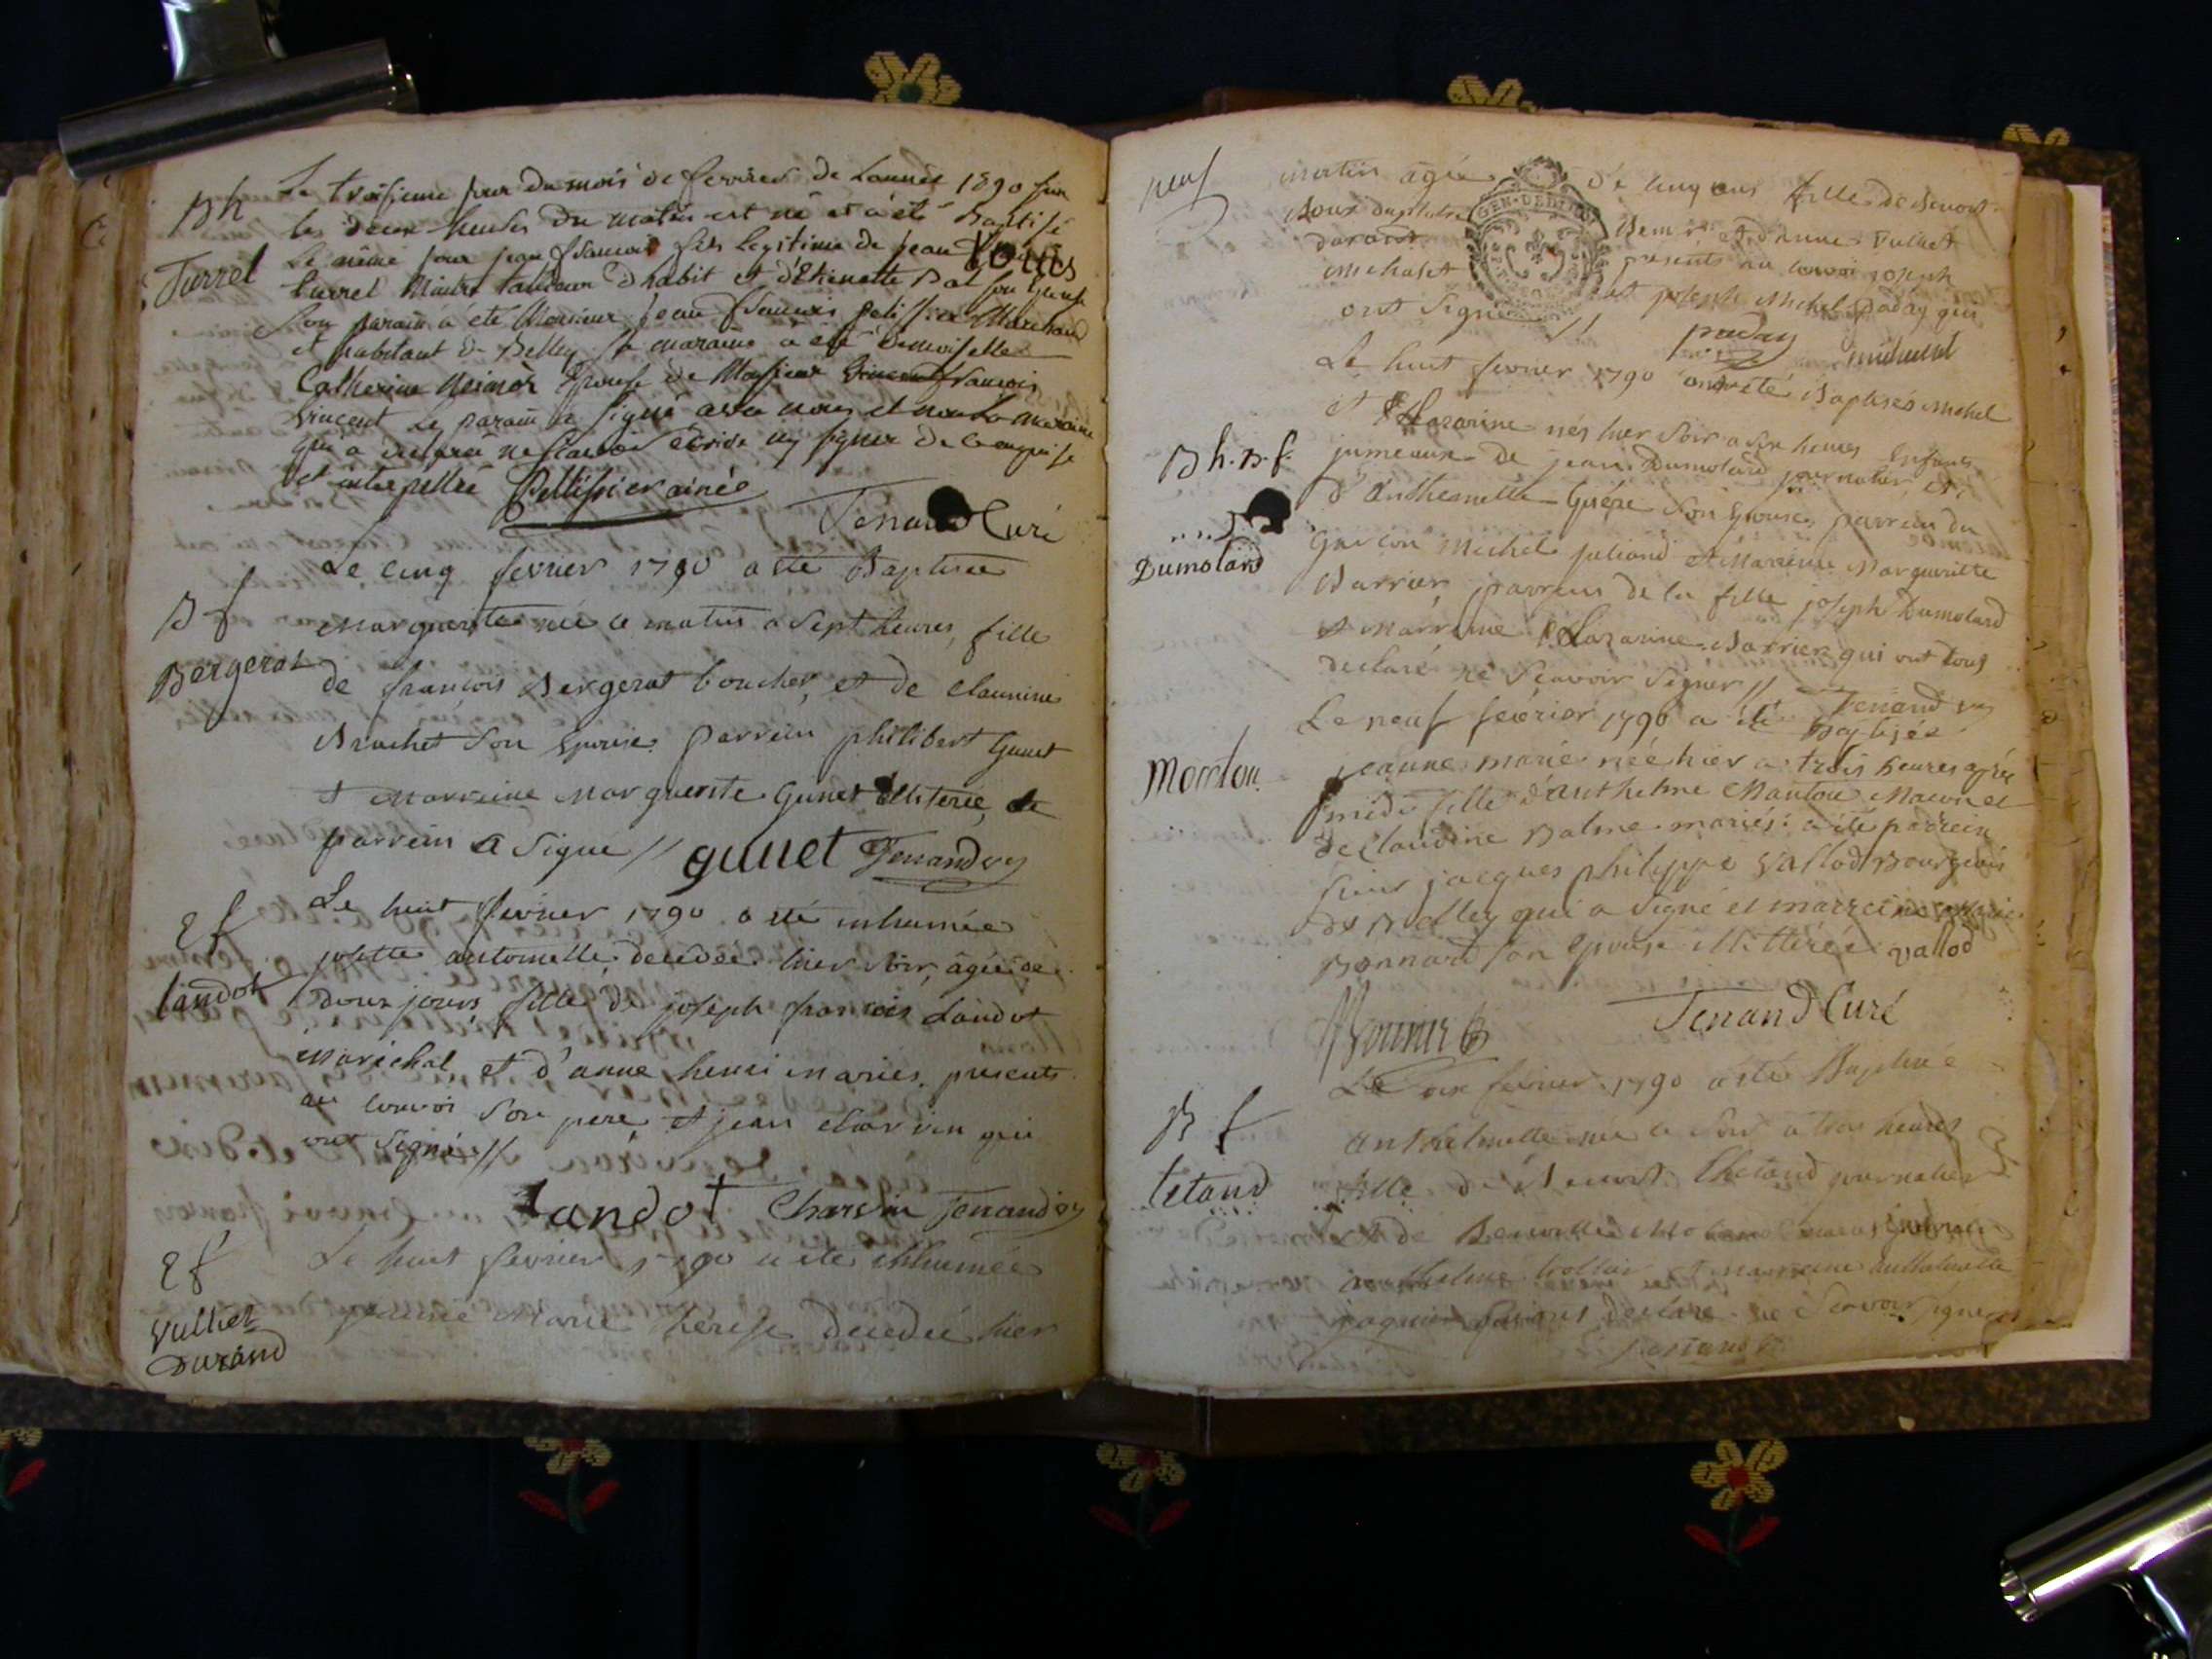 Bh
Turrel
Le troisieme jour du mois de fevrier de Lannée 1890 sur
les deux heures du matin est né et a été Baptisé
Le même jour jean francois fils legitime de jean Louis
turrel Maitre tailleur d'habit et d'Etiennette Bal son Epouse
Son parain a été Monsieur jean francois pelissier Marchand
et habitant de Belley La maraine a été Demoiselle
Catherine Epouse de Monsieur francois
vincent Le parain a signé avec nous et non La maraine
qui a declaré ne scavoir écrire ny signer de ce enquise
et interpellée Pellissier ainée
Tenand Curé
Bf
Bergerat
Le cinq fevrier 1790 a été Baptisée
Marguerite née ce matin a Sept heures, fille
de françois Bergerat boucher, et de claudine
Brachet son Epouse. parrein philibert Gunet
et Marreine Marguerite Gunet illiterée, le
parrein a signé // gunet Tenand cu
Ef
Landot
Le huit fevrier 1790 a été inhumée
josette antoinette decedée hier soir, âgée de
douze jours fille de joseph francois Landot
Maréchal, et d'anne henri mariés. presents
au convoi son pere, et jean charvin qui
ont signé //
Landot Charvin Tenand cu
Ef
Vulliet
Durand
Le huit fevrier 1790 a été inhumée
Marie therese decedée hier
neuf
matin agée de cinq ans fille de Benoit
Durand et d'anne Vulliet
presents au convoi joseph
Michalet et joseph Michel paday qui
ont signé //
paday michalet
Bh. B. f.
Dumolard
Le huit fevrier 1790 ont été Baptisés Michel
et Lazarine nés hier soir a six heures Enfants
jumeaux de jean Dumolard journalier, et
d'Anthelmette Guépe son Epouse, parrein du
garcon Michel juliand et Mareine Marguerite
Barrier, parrein de la fille joseph Dumolard
et Marreine Lazarine Barrier qui ont tous
declaré ne scavoir signer //
Tenand cu
Manton
Le neuf fevrier 1790 a été Baptisée
jeanne marie née hier a trois heures après
midi fille d'anthelme Manton Macon et
de claudine Balme mariés: a été parrein
sieur jacques philippe Vallod Bourgeois
de Belley qui a signé et marreine
Bonnard son epouse illiterée vallod
Tenand Curé
Bf
tetand
Le dix fevrier 1790 a été Baptisée
anthelmette née ce soir a trois heures
fille de Benoit thetand journalier
et de Benoitte
anthelme et marreine anthelmette
declaré ne scavoir signer
Tenand cu